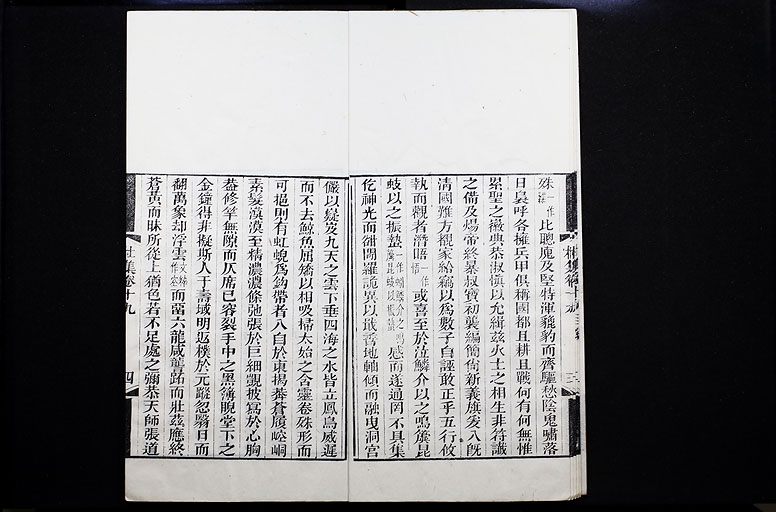 殊一作
洙比聰廆及堅特渾貔豹而齊驅愁陰鬼嘯落
日梟呼各擁兵甲俱稱國都且耕且戰何有何無惟
累聖之徽典恭淑慎以允緝茲火土之相生非符讖
之備及煬帝終暴叔寶初襲編簡尚新義旗爰入既
清國難方覩家給竊以為數子自誣敢正乎五行攸
執而觀者潛晤一作
悟或喜至於泣鱗介以之鳴儀昆
蚑以之振蟄感而遂通罔不具集
仡神光而甝閜羅詭異以戢孴地軸傾而融曳洞宮
儼以嶷岌九天之雲下垂四海之水皆立鳳鳥威遲
而不去鯨魚屈矯以相吸掃太始之含靈卷殊形而
可挹則有虹蜺為鉤帶者八自於東揭莽蒼履崆峒
素髮漠漠至精濃濃條弛張於巨細覬披寫於心胸
蓋修竿無隙而仄席已容裂手中之黑簿睨堂下之
金鐘得非擬斯人于壽域明返樸於元蹤忽翳日而
翻萬象却浮雲而留六龍咸䟆跖而壯茲應終
蒼黃而昧所從上猶色若不足處之彌恭天師張道
杜集卷十九
四